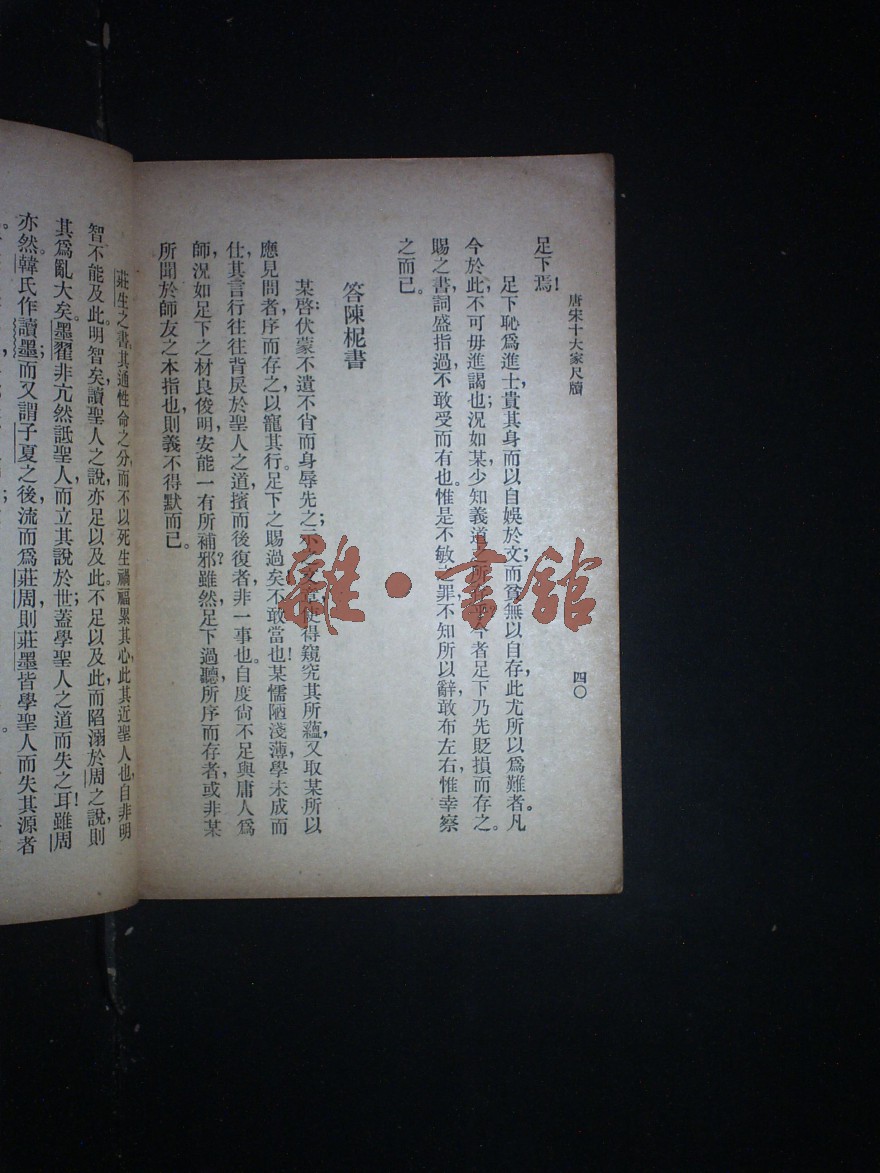 唐宋十大家尺牘
四〇
足下焉!
足下恥爲進士,貴其身而以自娛於文;而貧無以自存,此尤所以爲難者。凡
今於此,不可毋進謁也;況如某少知義道之所 今者足下乃先貶損而存之。
賜之書,詞盛指過,不敢受而有也。惟是不敏之罪,不知所以辭,敢布左右,惟幸察
之而已。
答陳柅書
某啓:伏蒙不遺不肖,而身辱先之;示之文 使得窺究其所蘊,又取某所以
應見問者序而存之,以寵其行。足下之賜過矣,不敢當也!某懦陋淺薄,學未成而
仕,其言行往往背戾於聖人之道,擯而後復者,非一事也。自度尙不足與庸人爲
師,況如足下之材良俊明,安能一有所補邪?雖然,足下過聽,所序而存者,或非某
所聞於師友之本指也,則義不得默而已。
莊生之書,其通性命之分,而不以死生禍福累其心,此其近聖人也,自非明
智不能及此。明智矣,讀聖人之說,亦足以及此。不足以及此,而陷溺於周之說,則
其爲亂大矣。墨翟非亢然詆聖人而立其說於世;蓋學聖人之道而失之耳!雖周
亦然。韓氏作讀墨;而又謂子夏之後,流而爲莊周,則莊墨皆學聖人而失其源者
雜·書館